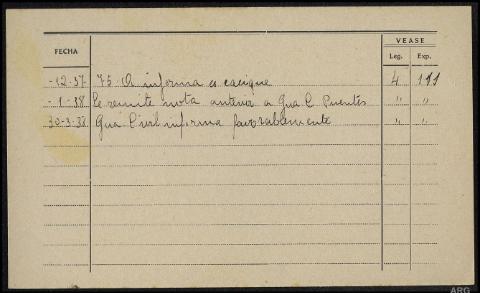 VEASE
FECHA
Leg. Exp.
-12-37 75 informa es cacique 4 111
-1-38 Se remite nota anterior a Gua C Puentes " "
30-3-38 Gua Civil informa favorablemente " "
ARG